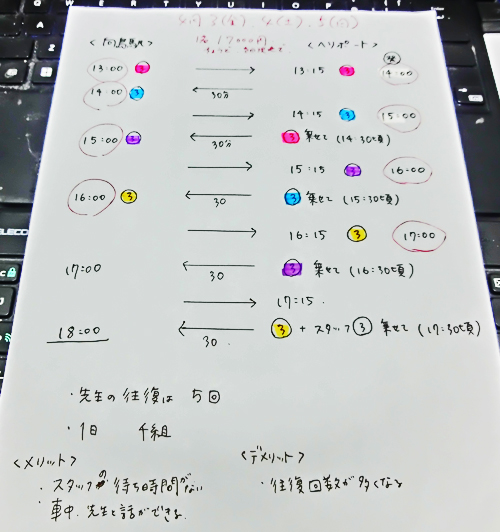 4月3(金), 4(土), 5(日)
17000円
<阿鳥駅> <ヘリポート>
13:00 → 13:15 3 発 14:00
14:00 3 ← 30分
→ 14:15 3 15:00
15:00 3 ← 30分 3 乗せて (14:30頃)
→ 15:15 3 16:00
16:00 3 ← 30 3 乗せて (15:30頃)
→ 16:15 3 17:00
17:00 ← 30 3 乗せて (16:30頃)
→ 17:15.
18:00 ← 30. 3 + スタッフ3 乗せて (17:30頃)
・先生の往復は 5回
・1日 4組
<メリット> <デメリット>
・スタッフの待ち時間がない ・往復回数が多くなる
・車中、先生と話ができる